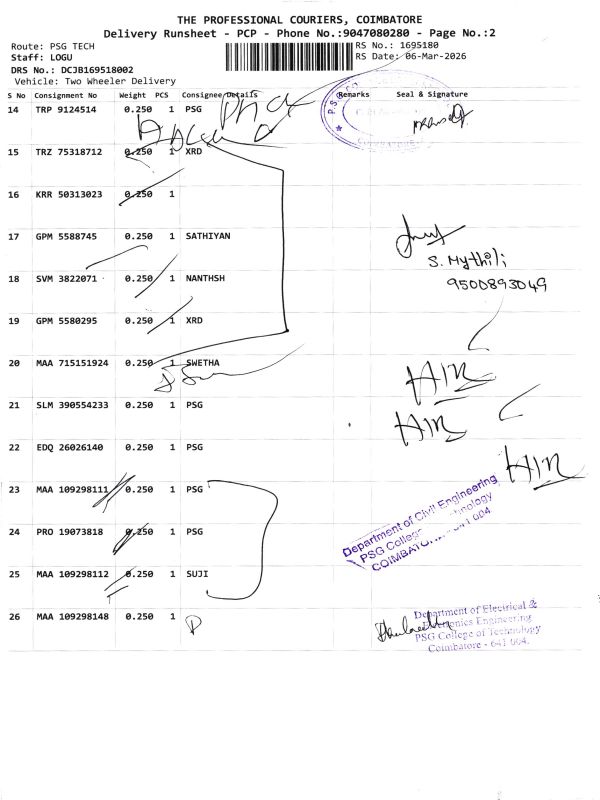 THE PROFESSIONAL COURIERS, COIMBATORE
Delivery Runsheet - PCP - Phone No.:9047080280 - Page No.:2
Route: PSG TECH
Staff: LOGU
DRS No.: DCJB169518002
Vehicle: Two Wheeler Delivery
RS No.: 1695180
RS Date: 06-Mar-2026
S No Consignment No Weight PCS Consignee Details Remarks Seal & Signature
14 TRP 9124514 0.250 1 PSG
15 TRZ 75318712 0.250 1 XRD
16 KRR 50313023 0.250 1
17 GPM 5588745 0.250 1 SATHIYAN
S. Mythili
9500893049
18 SVM 3822071 0.250 1 NANTHSH
19 GPM 5580295 0.250 1 XRD
20 MAA 715151924 0.250 1 SWETHA
21 SLM 390554233 0.250 1 PSG
22 EDQ 26026140 0.250 1 PSG
23 MAA 109298111 0.250 1 PSG
24 PRO 19073818 0.250 1 PSG
Department of Civil Engineering
PSG College Technology
COIMBATORE 641 004
25 MAA 109298112 0.250 1 SUJI
26 MAA 109298148 0.250 1
Department of Electrical &
Electronics Engineering
PSG College of Technology
Coimbatore - 641 004.